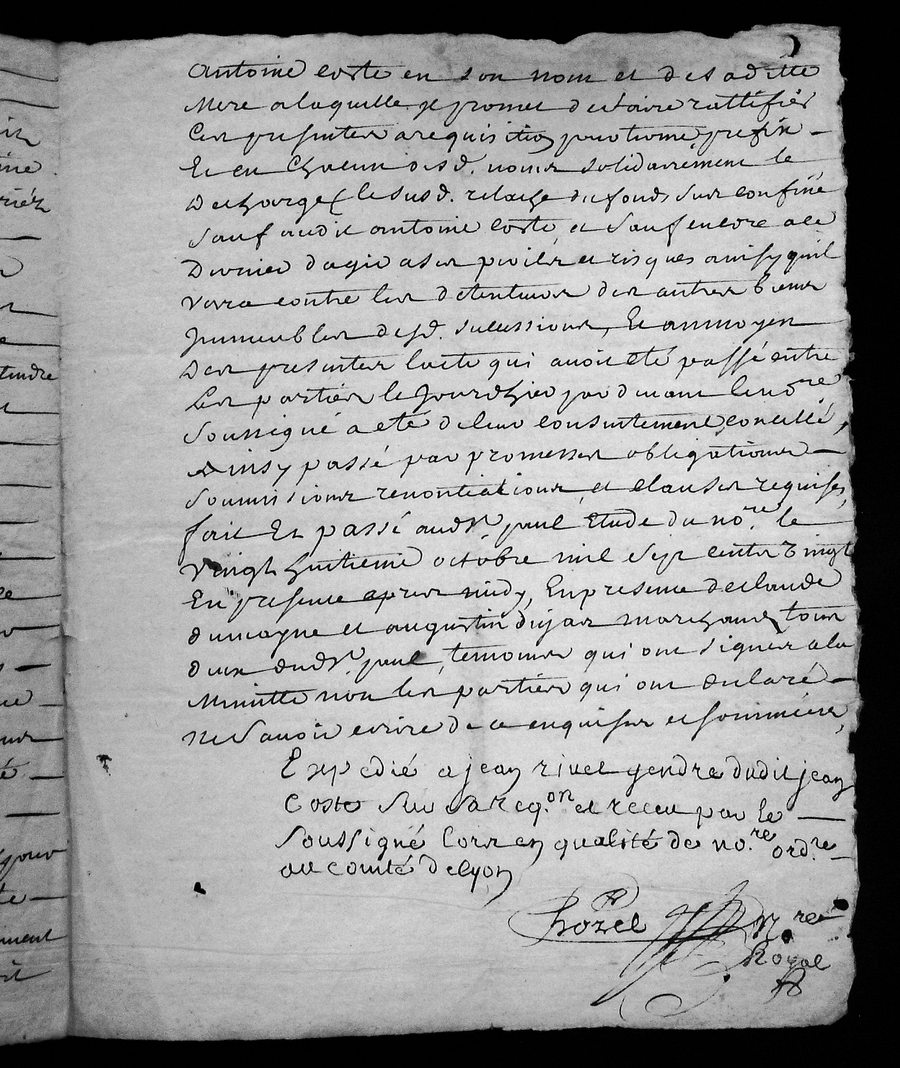 Antoine Coste en son nom et de sa ditte
Mere a laquelle jl promet de faire rattifier
Ces presentes a requisition pour tiome prefix
Et en chacun desd. noms solidairement le
Decharge le susd. relache du fonds sus confiné
Sauf audit antoine Coste, et sauf encore a ce
Dernier d'agir a ses perils et risques ainsy quil
verra contre les detenteurs des autres biens
Immeubles desd. sucessions, Et au moyen
Des presentes lacte qui avoit eté passé entre
Les parties le jourdhier par devant le no.re
Soussigné a eté de leur consentement cancellé,
Ainsy passé par promesses obligations
Soumissions renontiations, et clauses requises,
fait Et passé aud. St paul Etude du no.re le
vingt huitieme octobre mil sept cents vingt
En presence apres midy, En presence de claude
ducayne et augustin dujas marchand tous
deux dud. St paul, temoins qui ont signer a la
Minitte non les parties qui ont declaré
ne Savoir ecrire de ce enquises et sommées,
Expedié a jean rivel gendre dudit jean
Coste Sur sa req.on et receu par le
Soussigné Corr en qualité de no.re ord.re
au comté de lyon
Chozel N.re
Royal